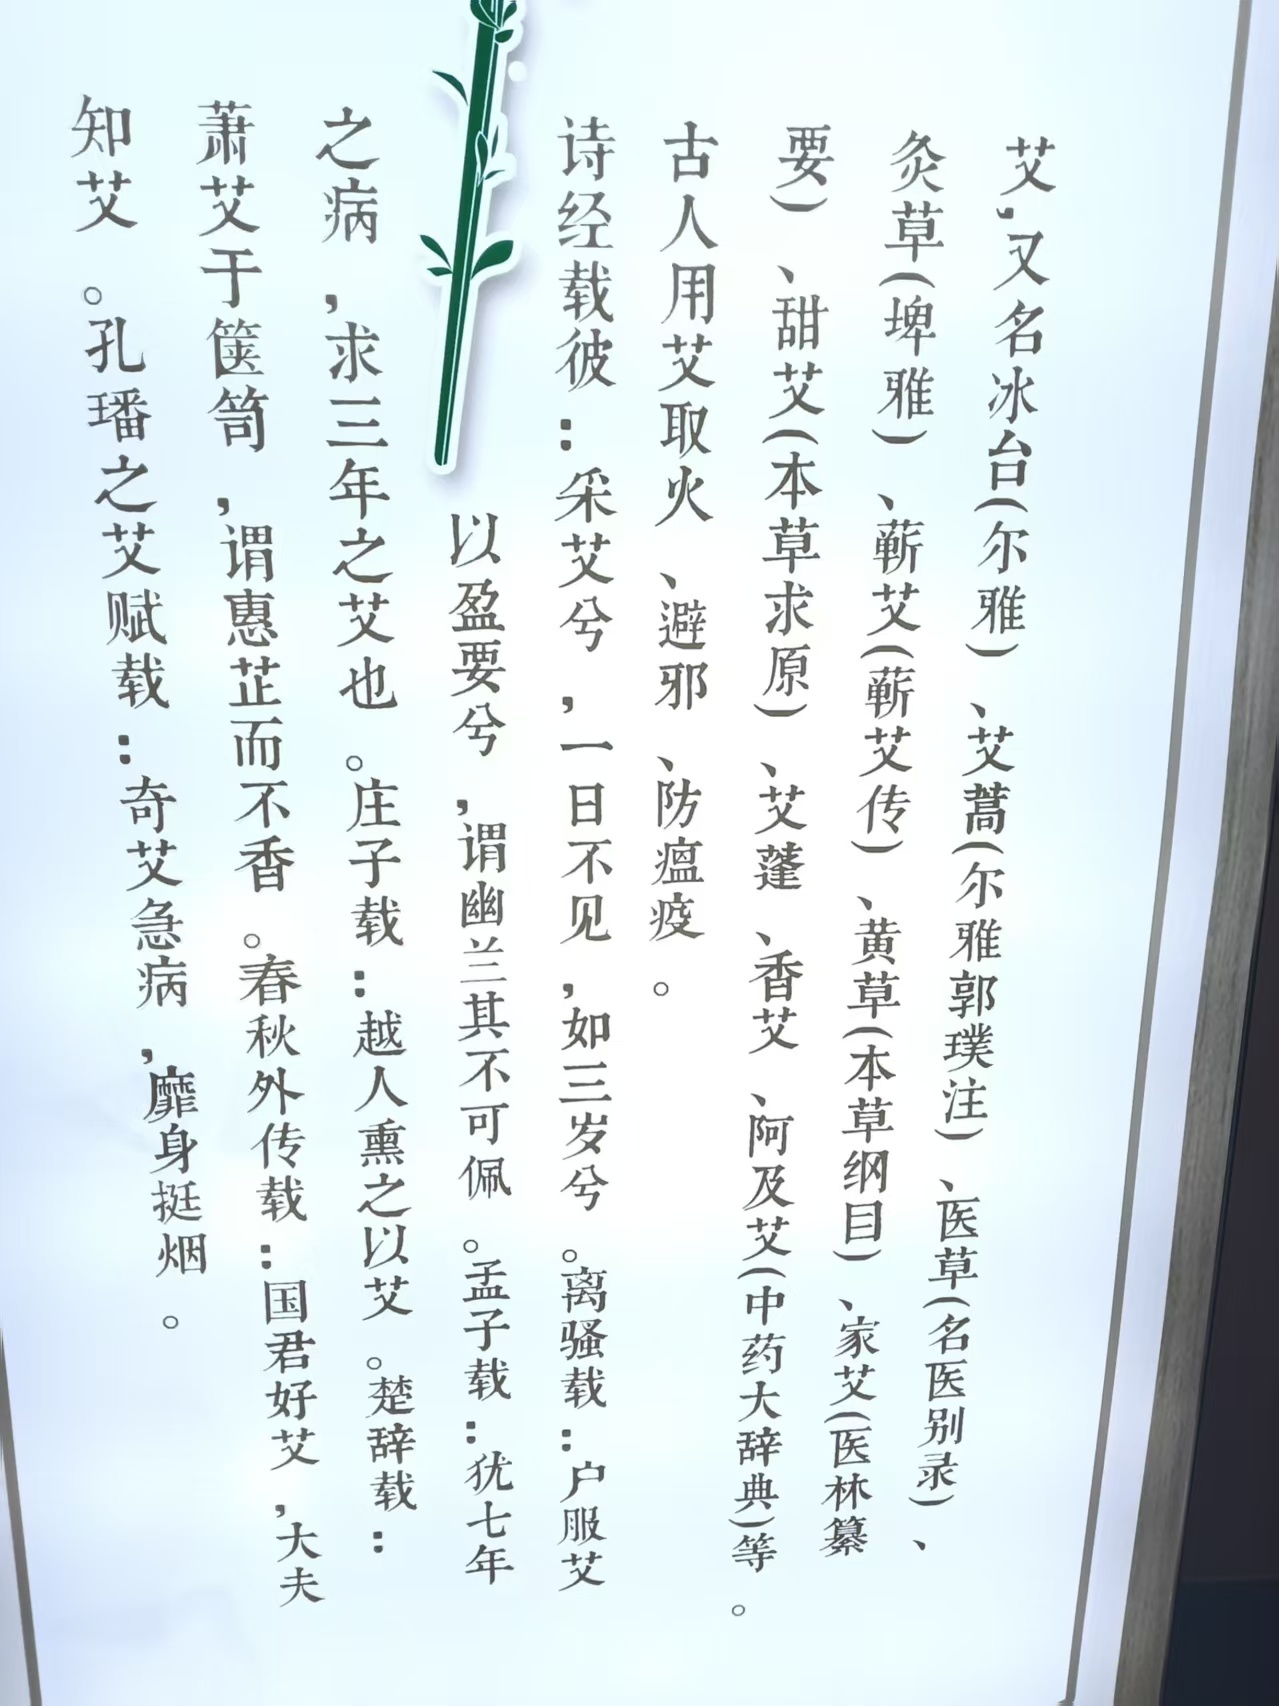 艾,又名冰台(尔雅)、艾蒿(尔雅郭璞注)、医草(名医别录)、
灸草(埤雅)、蕲艾(蕲艾传)、黄草(本草纲目)、家艾(医林纂
要)、甜艾(本草求原)、艾蓬、香艾、阿及艾(中药大辞典)等。
古人用艾取火、避邪、防瘟疫。
诗经载彼:采艾兮,一日不见,如三岁兮。离骚载:户服艾
以盈要兮,谓幽兰其不可佩。孟子载:犹七年
之病,求三年之艾也。庄子载:越人熏之以艾。楚辞载:
萧艾于箧笥,谓惠芷而不香。春秋外传载:国君好艾,大夫
知艾。孔璠之艾赋载:奇艾急病,靡身挺烟。